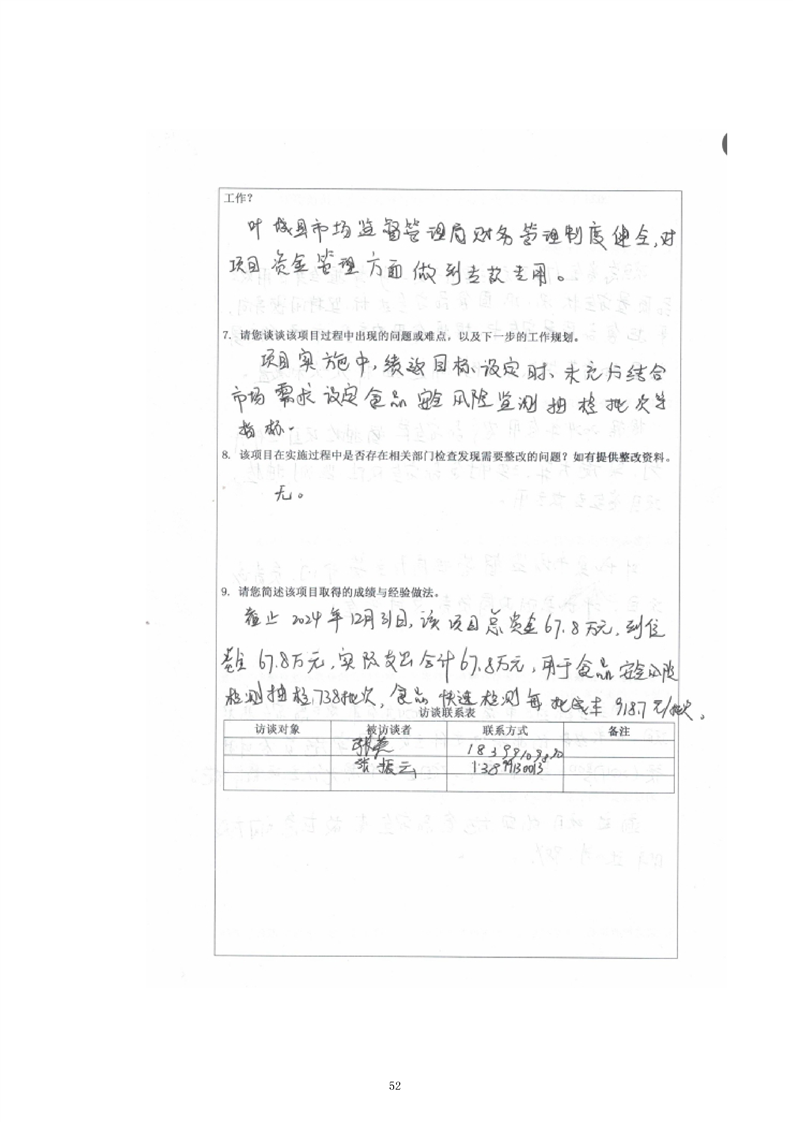 工作？
叶城县市场监督管理局财务管理制度健全，对
项目资金管理方面做到专款专用。
7. 请您谈谈该项目过程中出现的问题或难点，以及下一步的工作规划。
项目实施中，绩效目标设定时、未充分结合
市场需求设定食品安全风险监测抽检批次等
指标。
8. 该项目在实施过程中是否存在相关部门检查发现需要整改的问题？如有提供整改资料。
无。
9. 请您简述该项目取得的成绩与经验做法。
截止2024年12月31日，该项目总资金67.8万元，到位
资金67.8万元，实际支出合计67.8万元，用于食品安全风险
检测抽检738批次，食品快速检测每批成本918.7元/批次。
访谈联系表
访谈对象 被访谈者 联系方式 备注
张 18399109820
张振云 13899130013
52